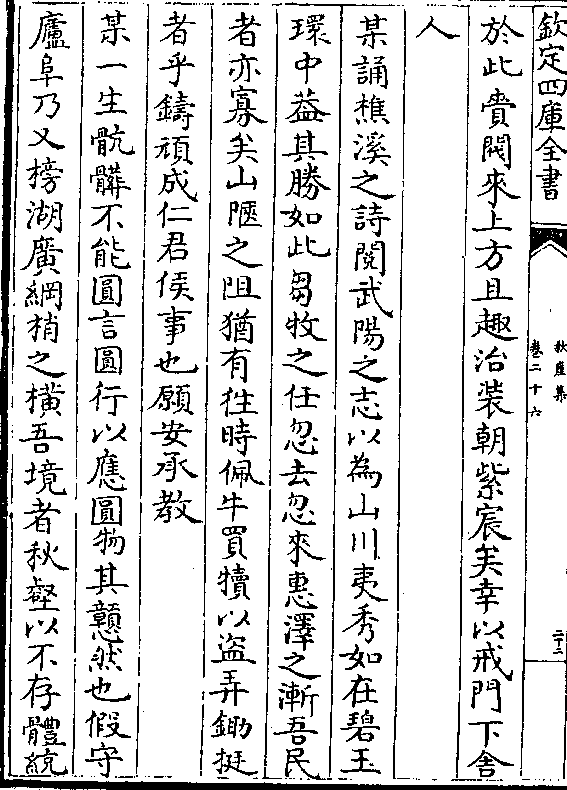 欽定四庫全書
秋崖集
卷二十六
二十二
於此貴閥來上方且趣治裝朝紫宸矣幸以戒門下舍
人
某誦樵溪之詩閱武陽之志以為山川夷秀如在碧玉
環中葢其勝如此芻牧之任忽去忽來惠澤之漸吾民
者亦寡矣山陿之阻猶有徃時佩牛買犢以盜弄鋤挺
者乎鑄頑成仁君侯事也願安承教
某一生骯髒不能圓言圓行以應圓物其戇然也假守
廬阜乃又榜湖廣綱梢之横吾境者秋壑以不存體統